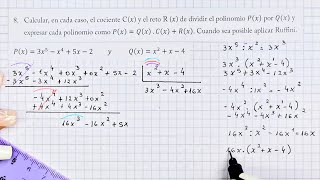 8. Calcular, en cada caso, el cociente C(x) y el reto R (x) de dividir el polinomio P(x) por Q(x) y
expresar cada polinomio como P(x) = Q(x) · C(x) + R(x). Cuando sea posible aplicar Ruffini.
P(x) = 3x⁵ − x⁴ + 5x − 2 y Q(x) = x² + x − 4
3x⁵ - x⁴ + 0x³ + 0x² + 5x - 2 | x² + x - 4
-3x⁵ - 3x⁴ + 12x³
3x³ - 4x² + 16x
-4x⁴ + 12x³ + 0x²
+4x⁴ + 4x³ - 16x²
16x³ - 16x² + 5x
3x⁵ : x² = 3x³
3x³ · (x² + x - 4)
3x⁵ + 3x⁴ - 12x³
-4x⁴ : x² = -4x²
-4x² · (x² + x - 4)
-4x⁴ - 4x³ + 16x²
16x³ : x² = 16x
16x · (x² + x - 4)